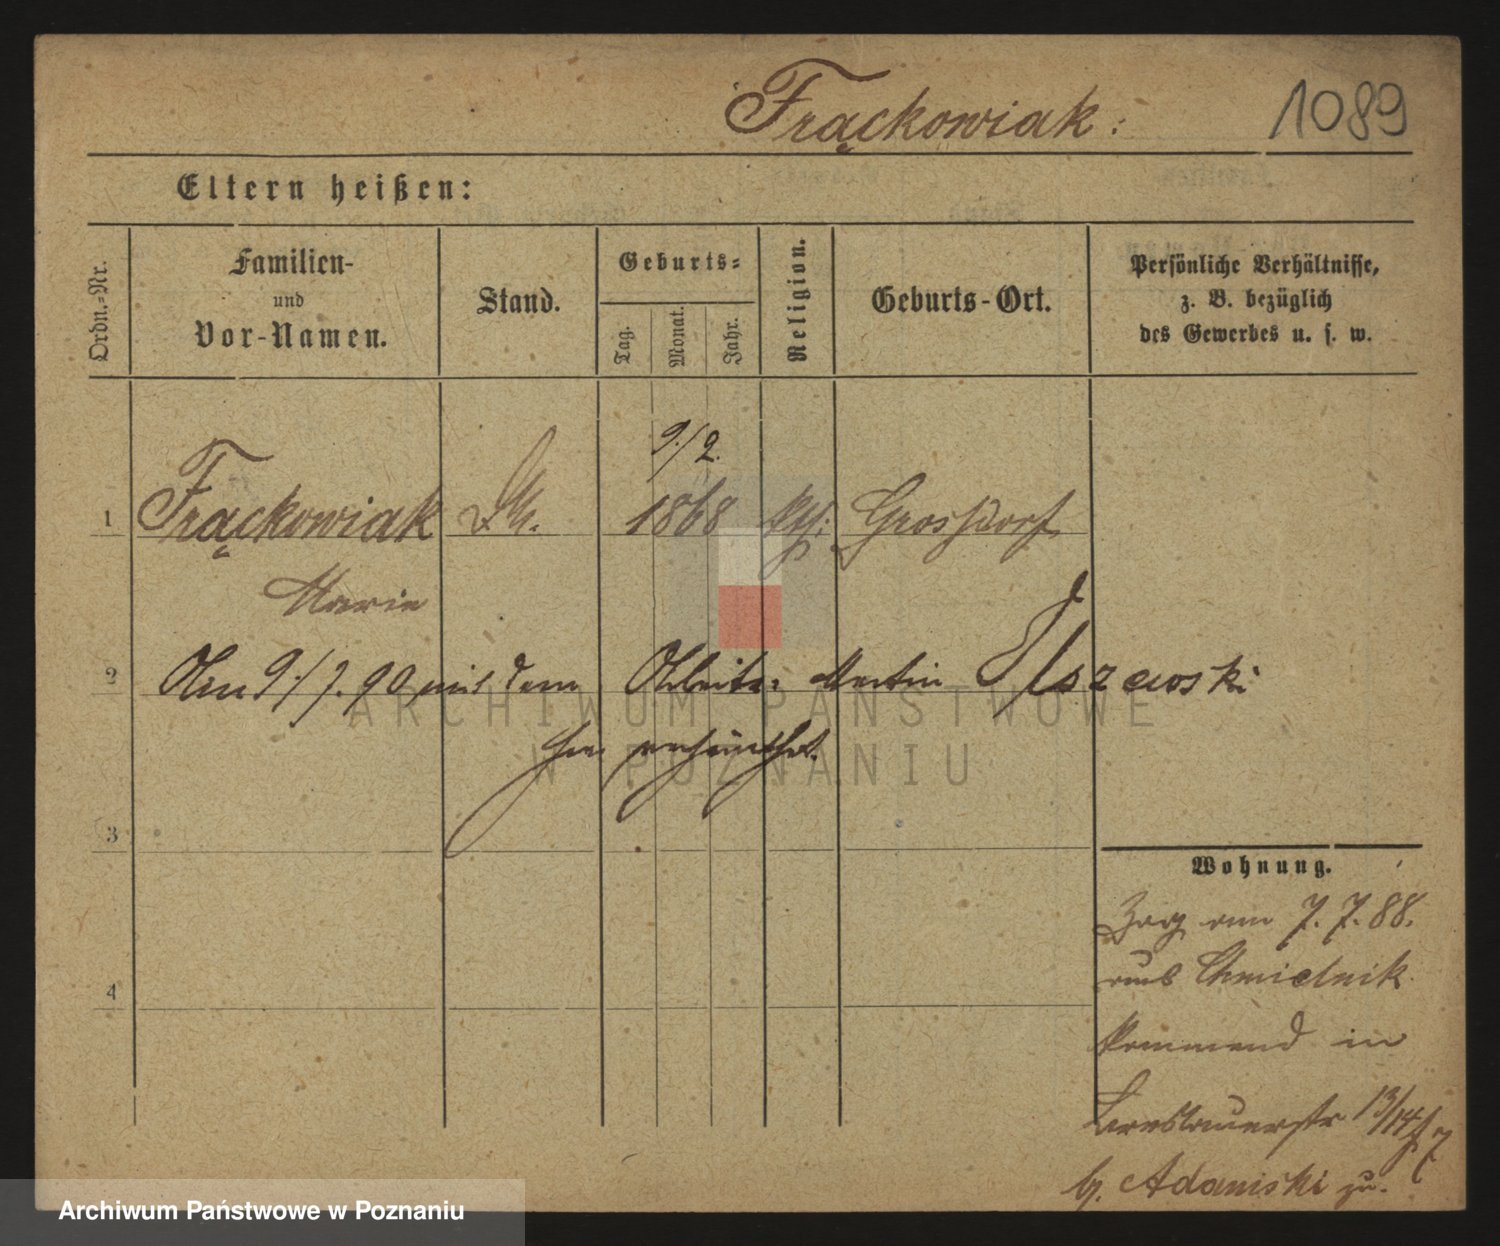 Frąckowiak:
1089
Eltern heißen:
Ordn.-Nr.
Familien-
und
Vor-Namen.
Stand.
Geburts-
Tag.
Monat.
Jahr.
Religion.
Geburts-Ort.
Persönliche Verhältnisse,
z. B. bezüglich
des Gewerbes u. s. w.
9./2.
1 Frąckowiak 1868 kth: Grossdorf
Marie
2 Am 9./7. 90 mit dem Arbeiter Martin
hier verheirathet.
ARCHIWUM PAŃSTWOWE
W POZNANIU
3
4
Wohnung.
Zog am 7. 7. 88.
aus Chmielnik
kommend in
Breslauerstr 13/14
b. Adamski zu.
Archiwum Państwowe w Poznaniu